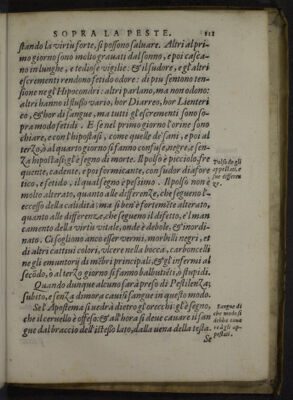 SOPRA LA PESTE. 112
stando la virtù forte, si possono saluare. Altri al pri-
mo giorno sono molto grauati dal sonno, e poi casca-
no in lunghe, e tediose vigilie: & il sudore, e gl'altri
escrementi rendono fetido odore: di piu sentono ten-
sione ne gl'Hipocondri: altri parlano, ma non odono:
altri hanno il flusso vario, hor Diarreo, hor Lienteri
co, & hor di sangue, ma tutti gl'escrementi sono so-
pra modo fetidi. E se nel primo giorno l'orine sono
chiare, e con l'hipostasi, come quelle de' sani, e poi al
terzo, ò al quarto giorno si fanno confuse, negre, e sen-
za hipostasi; gl'è segno di morte. Il polso è picciolo, fre
quente, cadente, e poi formicante, con sudor diafore
tico, e fetido, il qual segno è pessimo. Il polso non è
molto alterato, quanto alle differenze, che seguono l'
eccesso della calidità: ma si ben'è fortemẽte alterato,
quanto alle differenze, che seguono il difetto, e'l man
camento della virtù vitale, onde è debole, & inordi-
nato. Ci sogliono anco esser vermi, morbilli negri, et
di altri cattiui colori, vlcere nella bocca, carboncelli
ne gli emuntorij di mẽbri principali, & gl'infermi al
secõdo, ò al terzo giorno si fanno balbutiẽti, o stupidi.
Polsi de gli
appestati, e
sue differen
ze.
Quando dunque alcuno sarà preso di Pestilenza;
subito, e senza dimora caui si sangue in questo modo.
Se l'Apostema si uedrà dietro gl'orecchi: gl'è segno,
che il ceruello è offeso: & all'hora si deue cauare il san
gue dal braccio dell'istesso lato, dalla uena della testa.
Sangue di
che modo si
debba caua
re à gli ap-
pestati.
Se